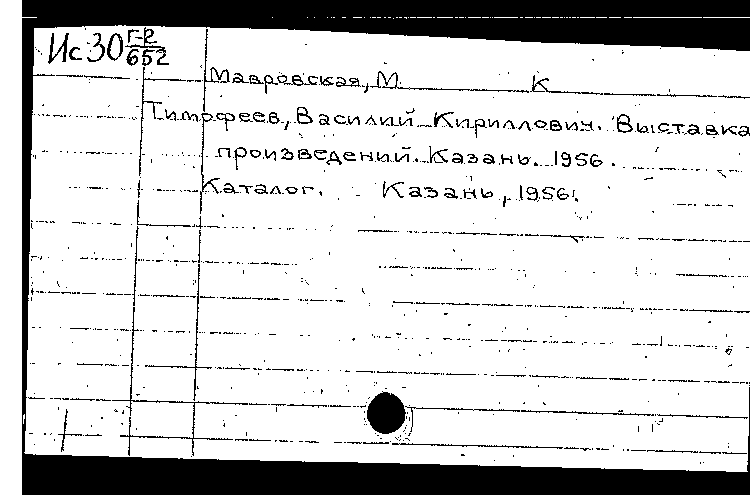 Ис30 Г-2/652
Мавровская, М. К
Тимофеев, Василий Кириллович. Выставка
произведений. Казань. 1956.
Каталог. Казань, 1956.